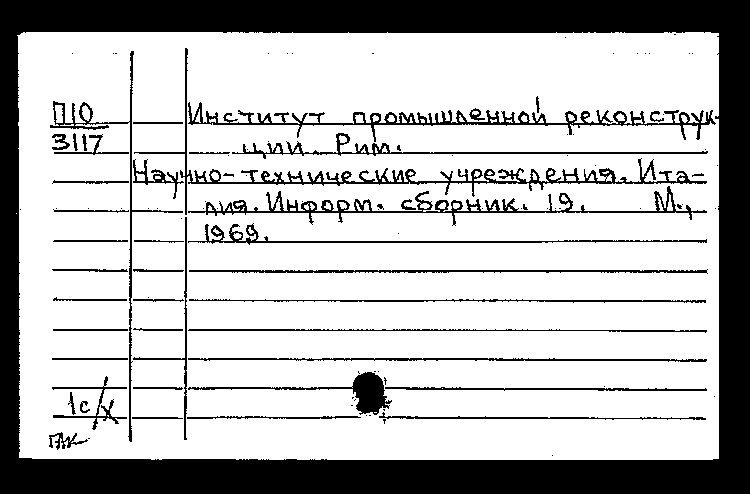 П10 Институт промышленной реконструк-
3117 ции. Рим.
Научно-технические учреждения. Ита-
лия. Информ. сборник. 19. М.,
1969.
1с/х
ГАК